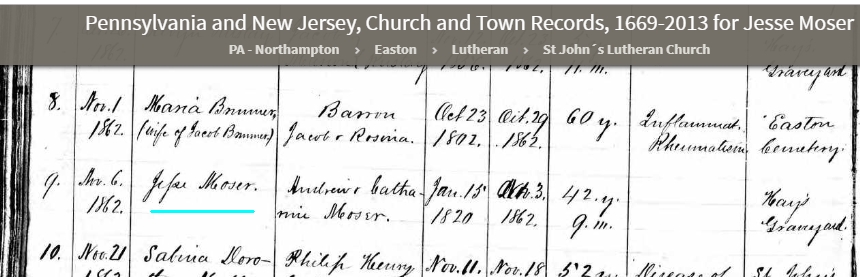 Pennsylvania and New Jersey, Church and Town Records, 1669-2013 for Jesse Moser
PA - Northampton › Easton › Lutheran › St John´s Lutheran Church
Graveyard
8. Nov. 1 Maria Brunner, Barron Oct 23 Oct. 29 60 y. Inflammat. Easton
1862. (wife of Jacob Brunner) Jacob & Rosina. 1802. 1862. Rheumatism. Cemetery.
9. Nov. 6. Jesse Moser. Andrew & Catha- Jan. 15 Nov. 3. 42. y. Hay's
1862. rine Moser. 1820 1862. 9. m. Graveyard.
10. Nov. 21 Sabina Doro- Philip Henry Nov. 11. Nov. 18 52 Disease of St. John's